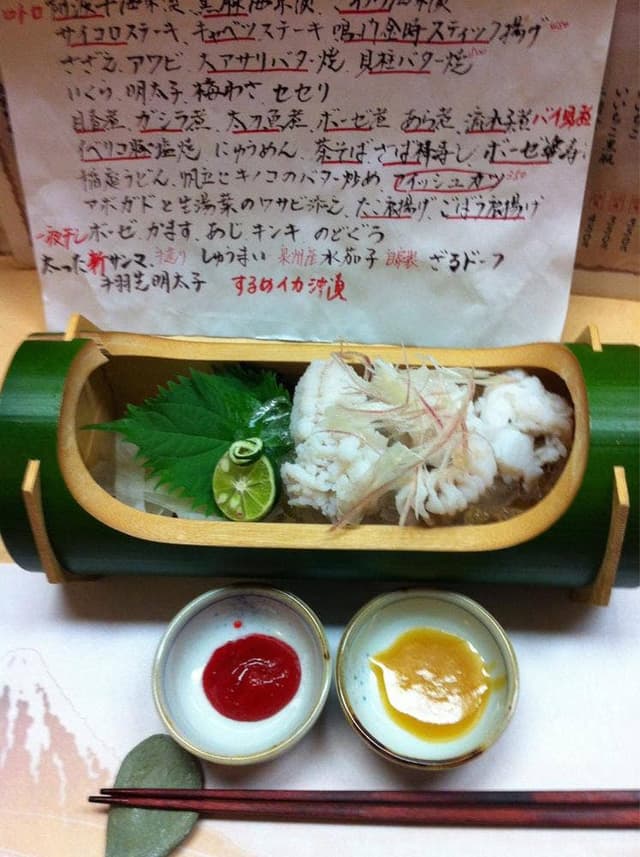 トロ
サイコロステーキ、キャベツステーキ 鳴門金時スティック揚げ 450
さざえ、アワビ、大アサリバター焼、貝柱バター焼 500
いくら 明太子、梅わさ、セセリ
目量煮 ガシラ煮 太刀魚煮 ボーゼ煮 あら煮 流れ子煮 バイ貝煮
イベリコ豚塩焼 にゅうめん、茶そば、さば棒寿し、ボーゼ姿寿し
稲庭うどん、帆立とキノコのバター炒め フィッシュカツ 350
アボガドと生湯葉のワサビ添え、たこ唐揚げ、ごぼう唐揚げ
一夜干し ボーゼ、かます、あじ キンキ のどぐう
太った新サンマ 手造り しゅうまい 泉州産 水茄子 自家製 ざるドーフ
手羽先明太子 するめイカ沖漬
いいちこ黒瓶